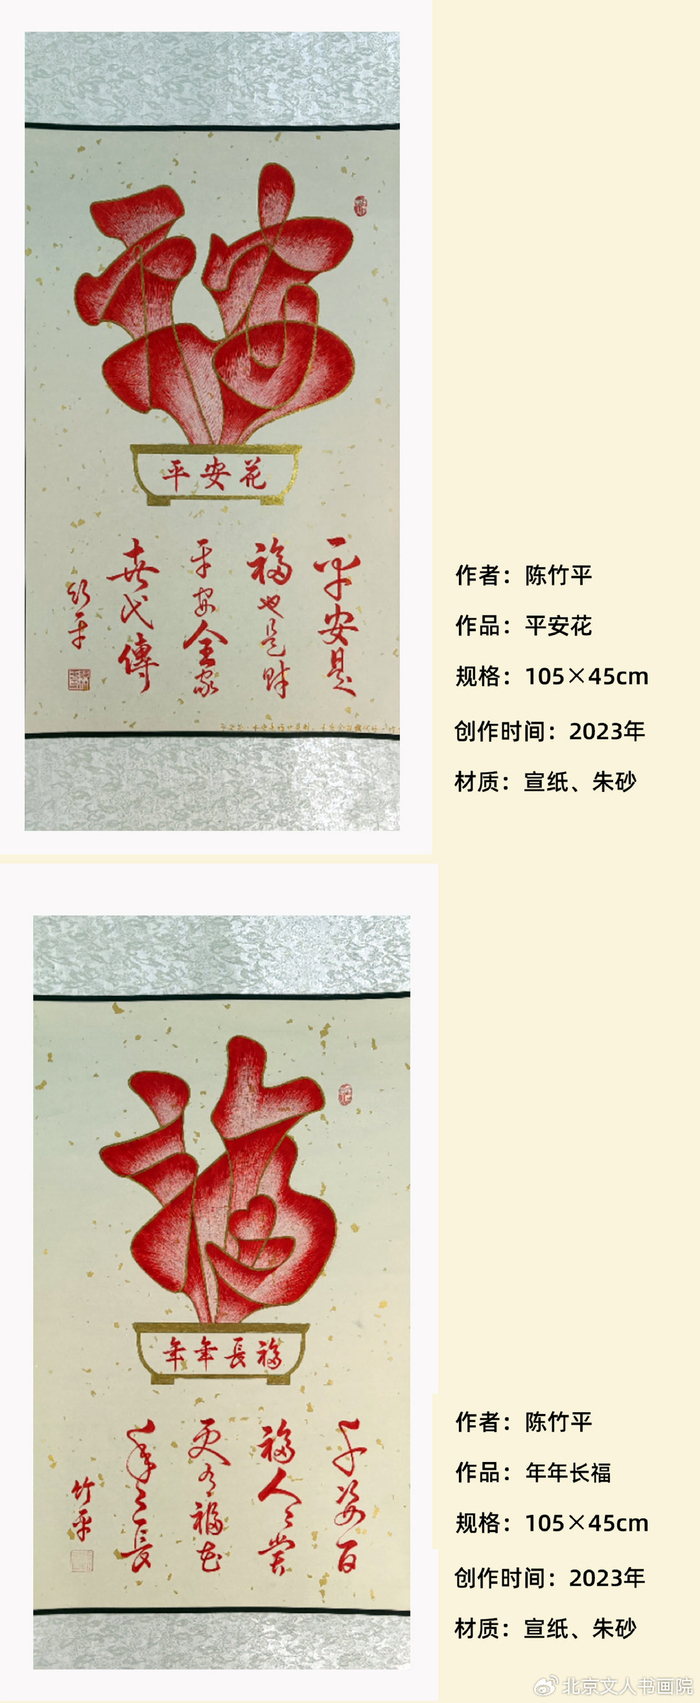 平安花
平安是
福也是财
平安全家
世代傳
竹平
作者：陈竹平
作品：平安花
规格：105×45cm
创作时间：2023年
材质：宣纸、朱砂
福
年年長福
千姿百
福人人赏
更有福花
年年長
竹平
作者：陈竹平
作品：年年长福
规格：105×45cm
创作时间：2023年
材质：宣纸、朱砂
北京文人书画院